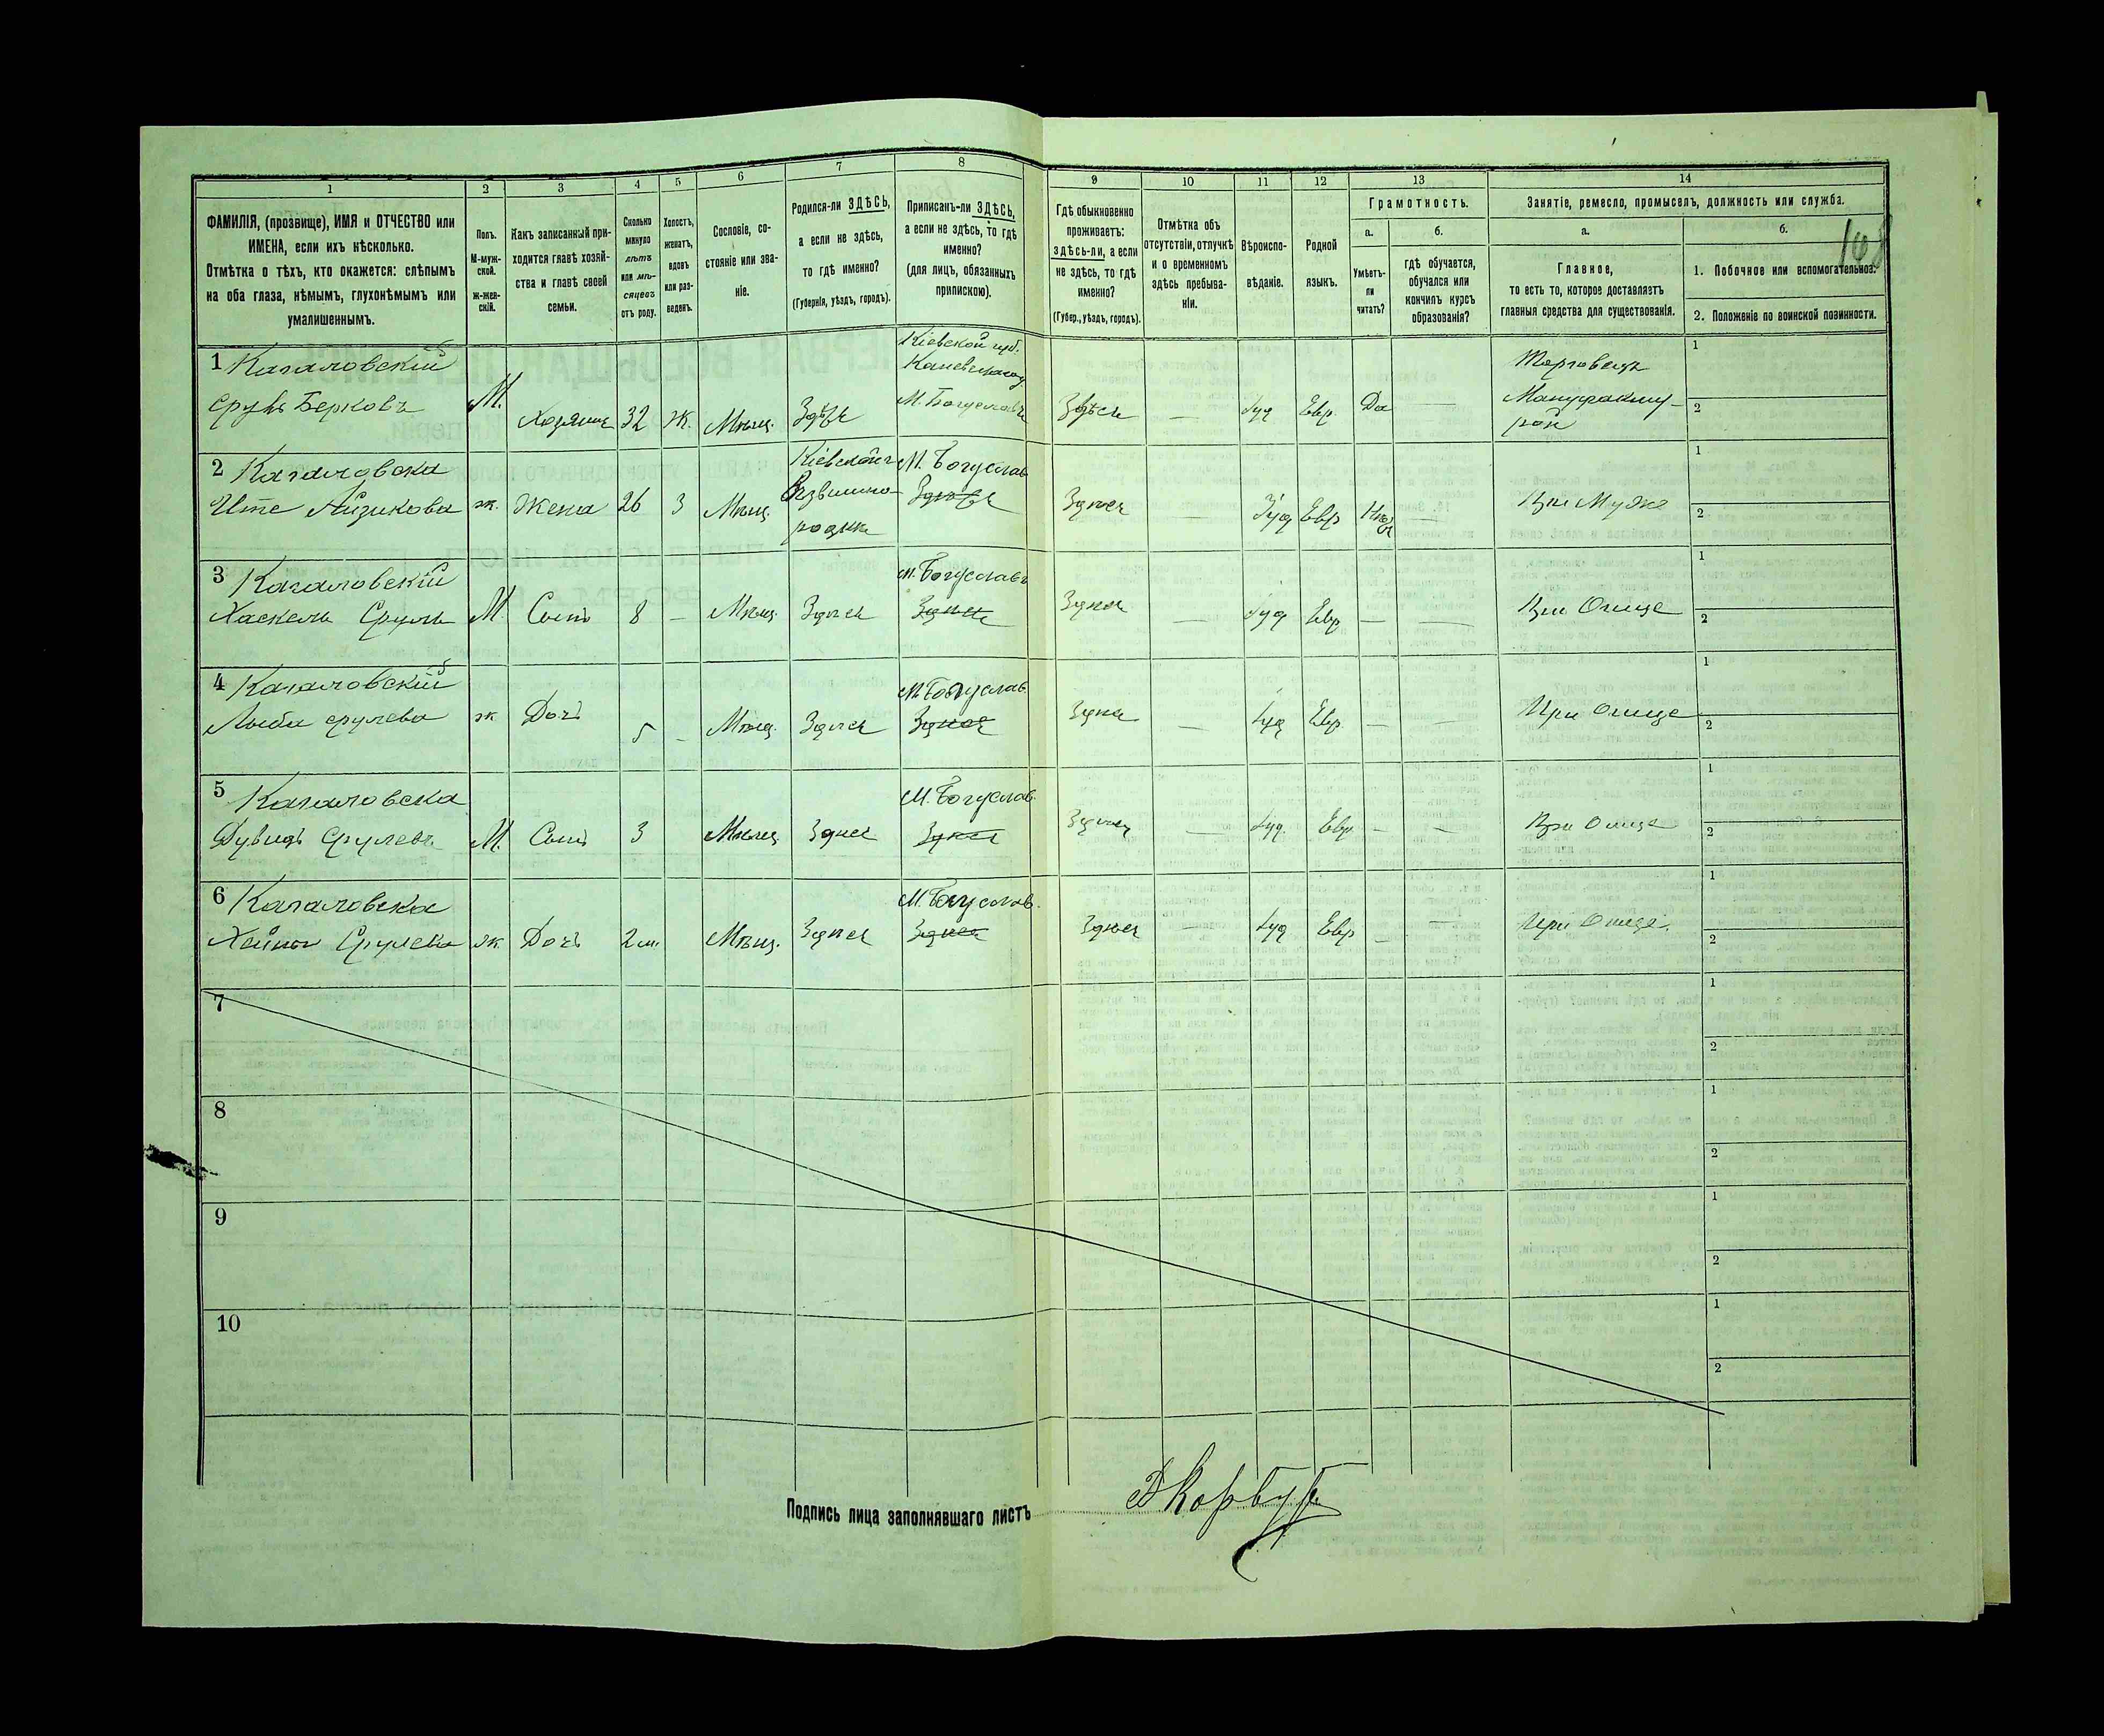 1 2 3 4 5 6 7 8 9 10 11 12 13 14
ФАМИЛІЯ, (прозвище), ИМЯ и ОТЧЕСТВО или
ИМЕНА, если ихъ нѣсколько.
Отмѣтка о тѣхъ, кто окажется: слѣпымъ
на оба глаза, нѣмымъ, глухонѣмымъ или
умалишеннымъ.
Полъ.
М-муж-
ской.
Ж-жен-
скій.
Какъ записанный при-
ходится главѣ хозяй-
ства и главѣ своей
семьи.
Сколько
минуло
лѣтъ
или мѣ-
сяцевъ
отъ роду.
Холостъ,
женатъ,
вдовъ
или раз-
веденъ.
Сословіе, со-
стояніе или зва-
ніе.
Родился-ли ЗДѢСЬ,
а если не здѣсь,
то гдѣ именно?
(Губернія, уѣздъ, городъ).
Приписанъ-ли ЗДѢСЬ,
а если не здѣсь, то гдѣ
именно?
(для лицъ, обязанныхъ
припискою).
Гдѣ обыкновенно
проживаетъ:
здѣсь-ли, а если
не здѣсь, то гдѣ
именно?
(Губер., уѣздъ, городъ).
Отмѣтка объ
отсутствіи, отлучкѣ
и о временномъ
здѣсь пребыва-
ніи.
Вѣроиспо-
вѣданіе.
Родной
языкъ.
Грамотность.
а.
Умѣетъ-
ли
читать?
б.
гдѣ обучается,
обучался или
кончилъ курсъ
образованія?
Занятіе, ремесло, промыселъ, должность или служба.
а.
Главное,
то есть то, которое доставляетъ
главныя средства для существованія.
б.
1. Побочное или вспомогательное.
2. Положеніе по воинской повинности.
108
1 Кагаловскій
Сруль Берковъ
М.
Хозяинъ
32
Ж.
Мѣщ.
Здѣсь
Кіевской губ.
Каневскаго у
М. Богуславъ
Здѣсь
—
Іуд
Евр.
Да
—
Торговецъ
Мануфакту-
рой
1
2
2 Кагаловска
Ите Айзикова
ж.
Жена
26
З
Мѣщ.
Кіевской г
Звенигородки
М. Богуслав
Здѣсь
Здѣсь
—
Іуд
Евр
Нѣт
—
При Мужѣ
1
2
3 Кагаловскій
Хаскель Сруль
М.
Сынъ
8
—
Мѣщ
Здѣсь
М. Богуславъ
Здѣсь
Здѣсь
—
Іуд
Евр
—
—
При Отцѣ
1
2
4 Кагаловскій
Лыба Срулева
ж
Дочь
5
—
Мѣщ.
Здѣсь
М. Богуслав.
Здѣсь
Здѣсь
—
Іуд
Евр
—
—
При Отцѣ
1
2
5 Кагаловска
Дувидъ Срулевъ
М.
Сынъ
3
Мѣщ
Здѣсь
М. Богуслав.
Здѣсь
Здѣсь
—
Іуд.
Евр
—
—
При Отцѣ
1
2
6 Кагаловска
Срулева
ж.
Дочь
2 м.
Мѣщ.
Здѣсь
М. Богуслав.
Здѣсь
Здѣсь
—
Іуд
Евр
—
—
При Отцѣ.
1
2
7
1
2
8
1
2
9
1
2
10
1
2
Подпись лица заполнявшаго листъ